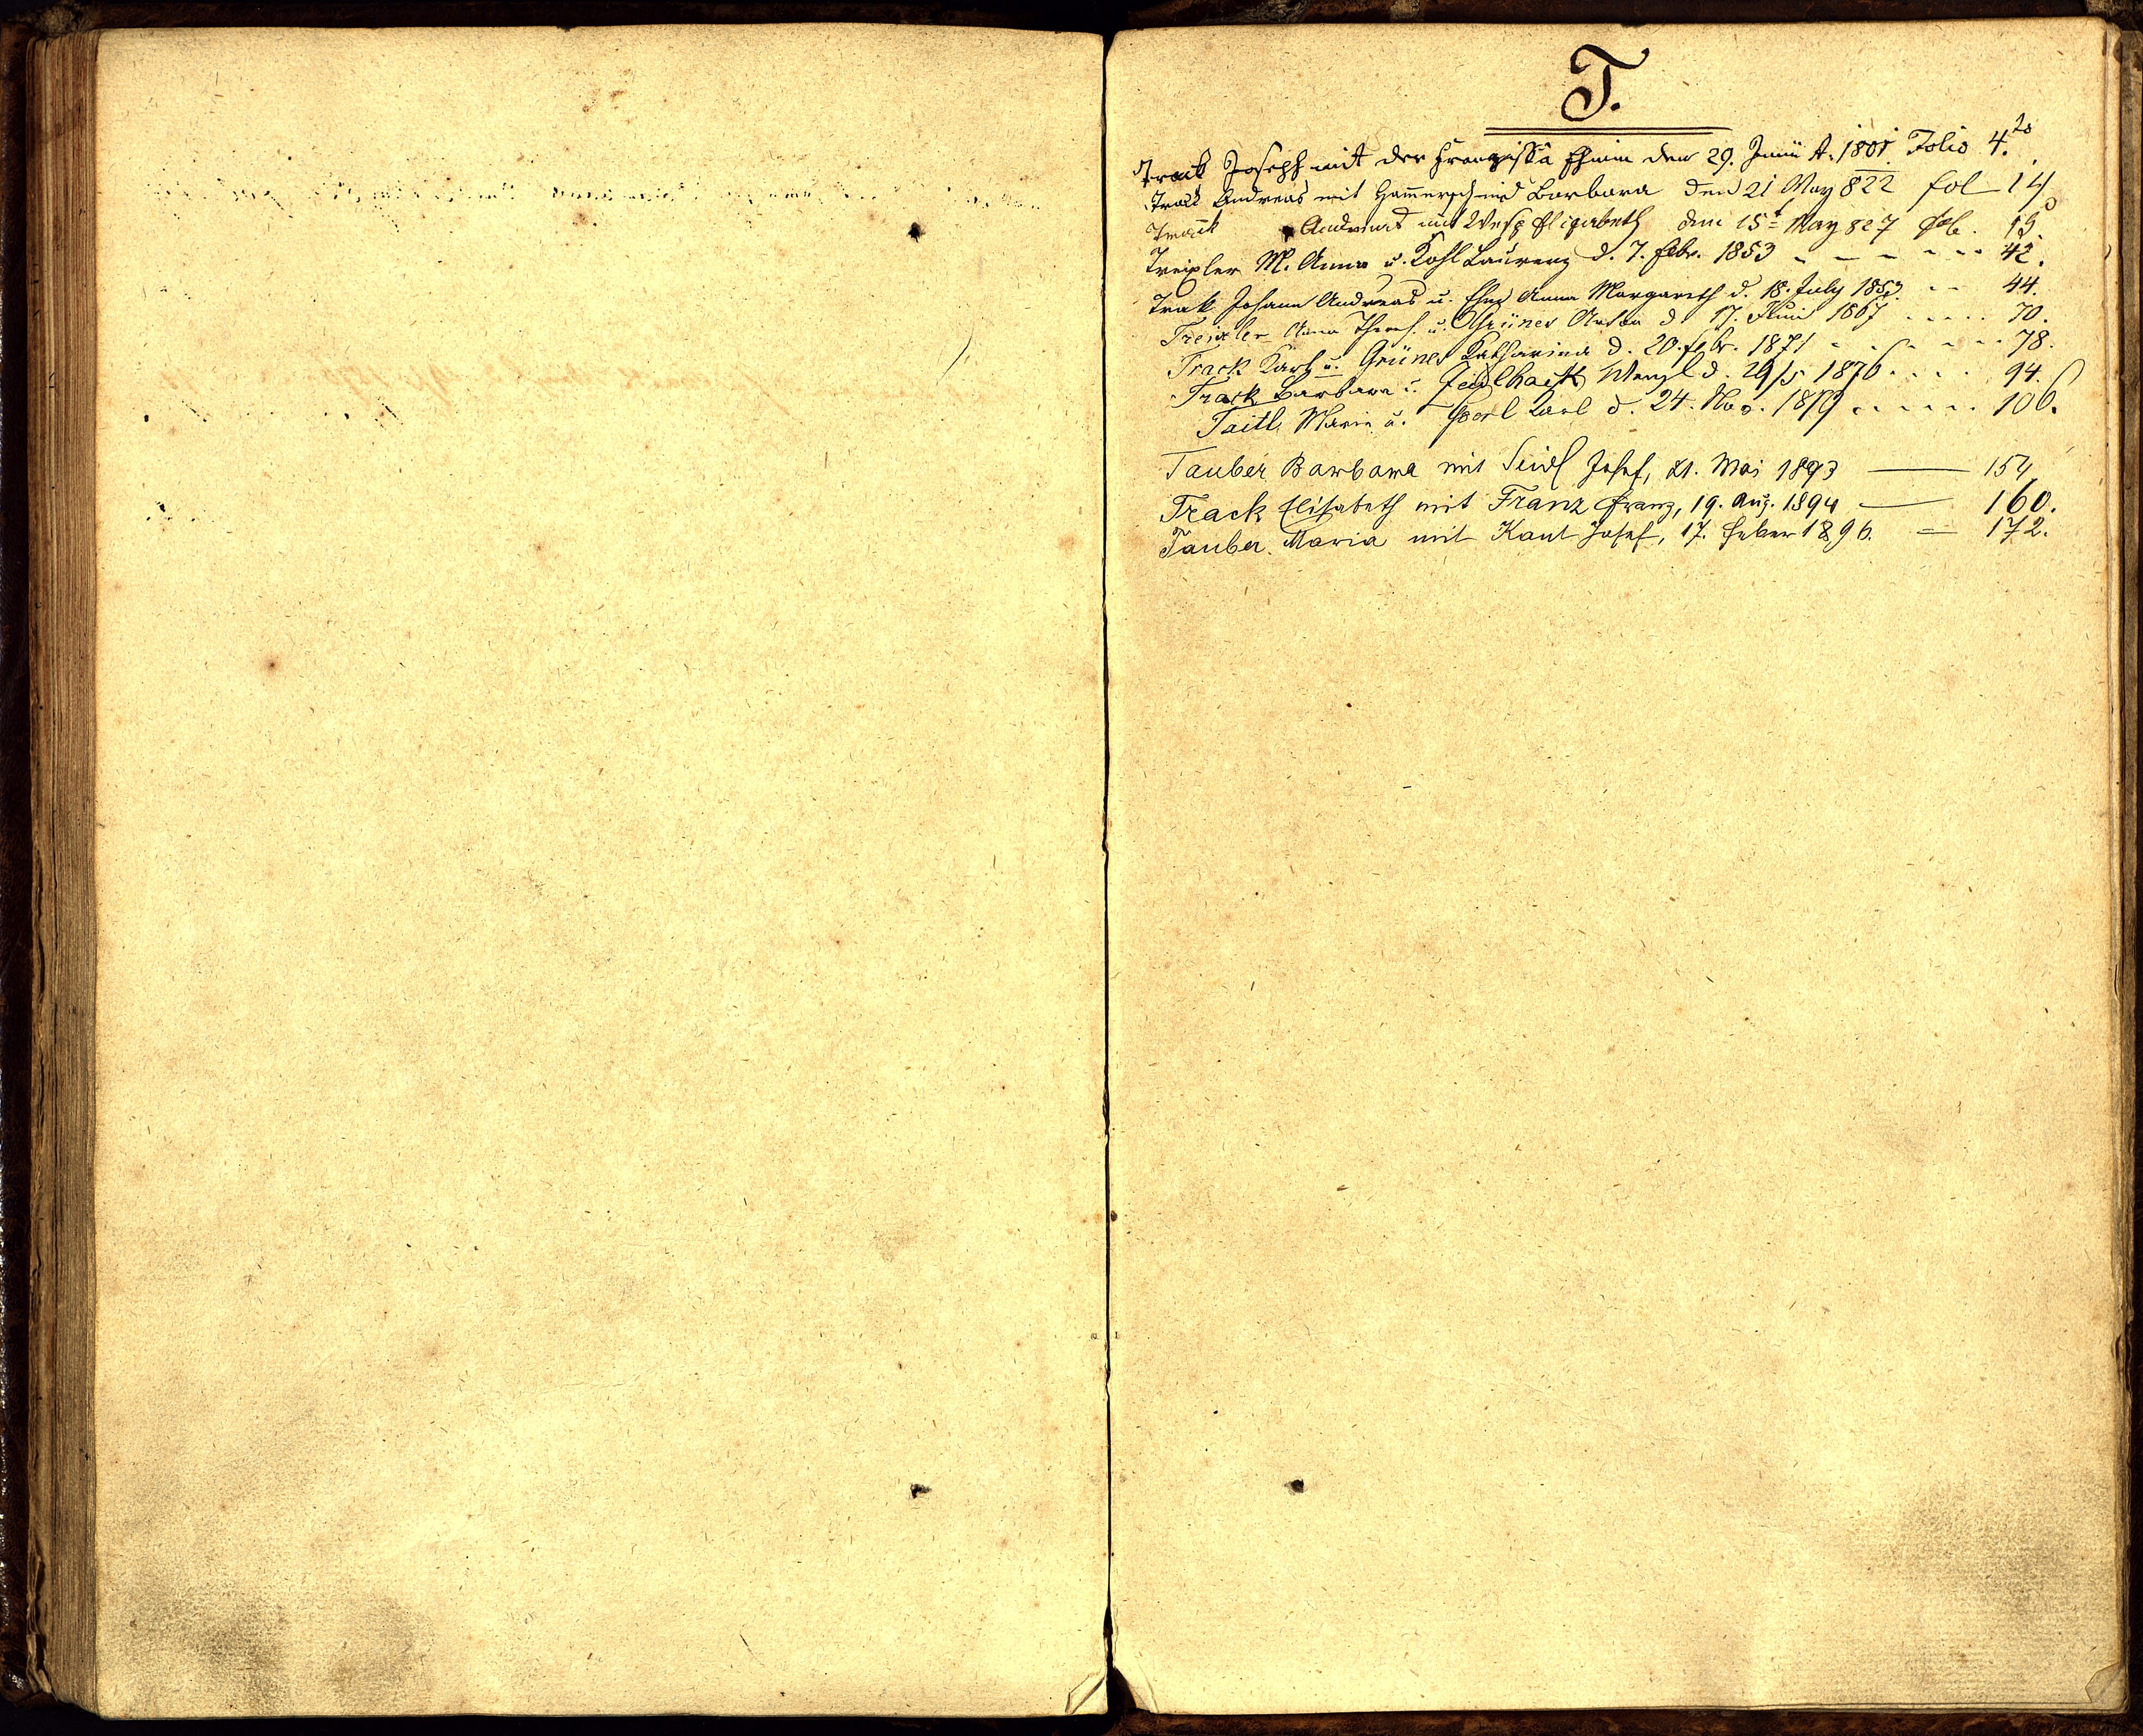 T.
Track Joseph mit der Franziska den 29. Junii A. 1801 Folio 4.to
Track Andreas mit Hammerschmid Barbara den 21 May 822 fol 14
Track Andreas mit Elisabeth den 15t May 827 fol. 19.
Treixler M. Anna u. Kohl Laurenz d. 7. Febr. 1853 - - - - - - 42.
Trak Johann Andreas u. Anna Margareth d. 18. July 1853 - - 44.
Treixler Anna Theres. u. Grüner Anton d. 17. Juni 1867 . . . . . 70.
Track Karl u. Grüner Katharina d. 20. Febr. 1871 - - - - - - 78.
Track Barbara u. Wenzl d. 29/5 1876 . . . . 94.
Taitl Marie u. Karl d. 24. Nov. 1879 . . . . . . 106.
Tauber Barbara mit Seidl Josef, 21. Mai 1893 — 154
Track Elisabeth mit Franz Franz, 19. Aug. 1894 — 160.
Tauber Maria mit Kant Josef, 17. Feber 1896. = 172.